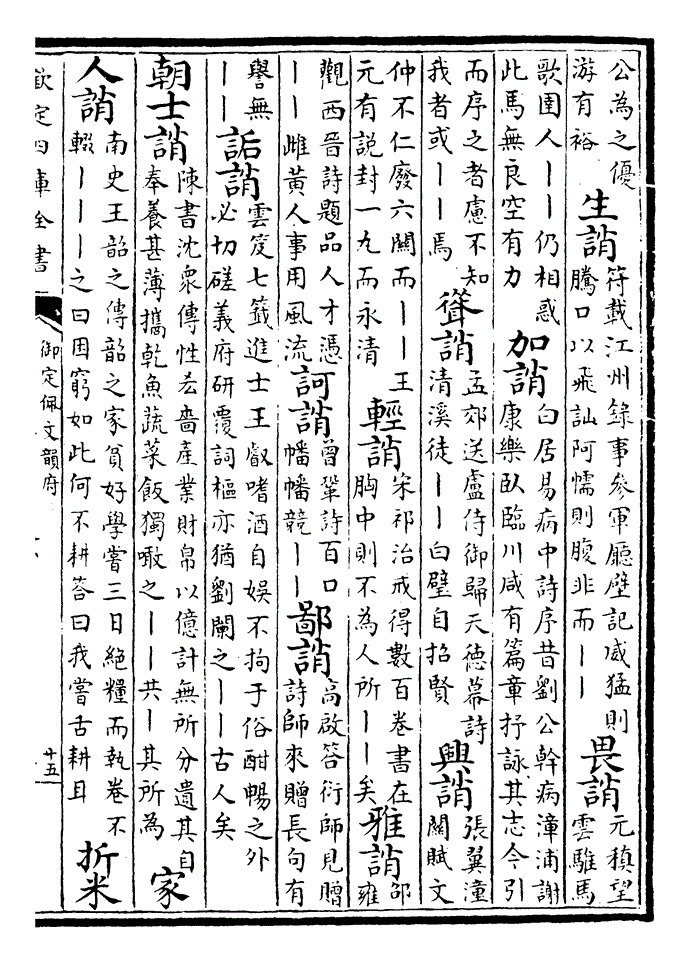 公為之優
游有裕
生誚
符載江州錄事參軍廳壁記威猛則
騰口以飛訕阿懦則腹非而丨丨
畏誚
元稹望
雲騅馬
歌圉人丨丨仍相惑
此馬無良空有力
加誚
白居易病中詩序昔劉公幹病漳浦謝
康樂臥臨川咸有篇章抒詠其志今引
而序之者慮不知
我者或丨丨焉
聳誚
孟郊送盧侍御歸天德幕詩
清溪徒丨丨白璧自招賢
興誚
張翼潼
關賦文
仲不仁廢六關而丨丨王
元有說封一九而永清
輕誚
宋祁治戒得數百卷書在
胸中則不為人所丨丨矣
雅誚
邵
雍
觀西晉詩題品人才憑
丨丨雌黃人事用風流
訶誚
曾鞏詩百口
幡幡競丨丨
鄙誚
高啟答衍師見贈
詩師來贈長句有
譽無
丨丨
詬誚
雲笈七籤進士王叡嗜酒自娛不拘于俗酣暢之外
必切磋義府研覆詞樞亦猶劉闌之丨丨古人矣
朝士誚
陳書沈眾傳性吝嗇產業財帛以億計無所分遺其自
奉養甚薄攜乾魚蔬菜飯獨噉之丨丨共丨其所為
家
人誚
南史王韶之傳韶之家貧好學嘗三日絕糧而執卷不
輟丨丨丨之曰困窮如此何不耕答曰我嘗舌耕耳
折米
欽定四庫全書
御定佩文韻府
廿五